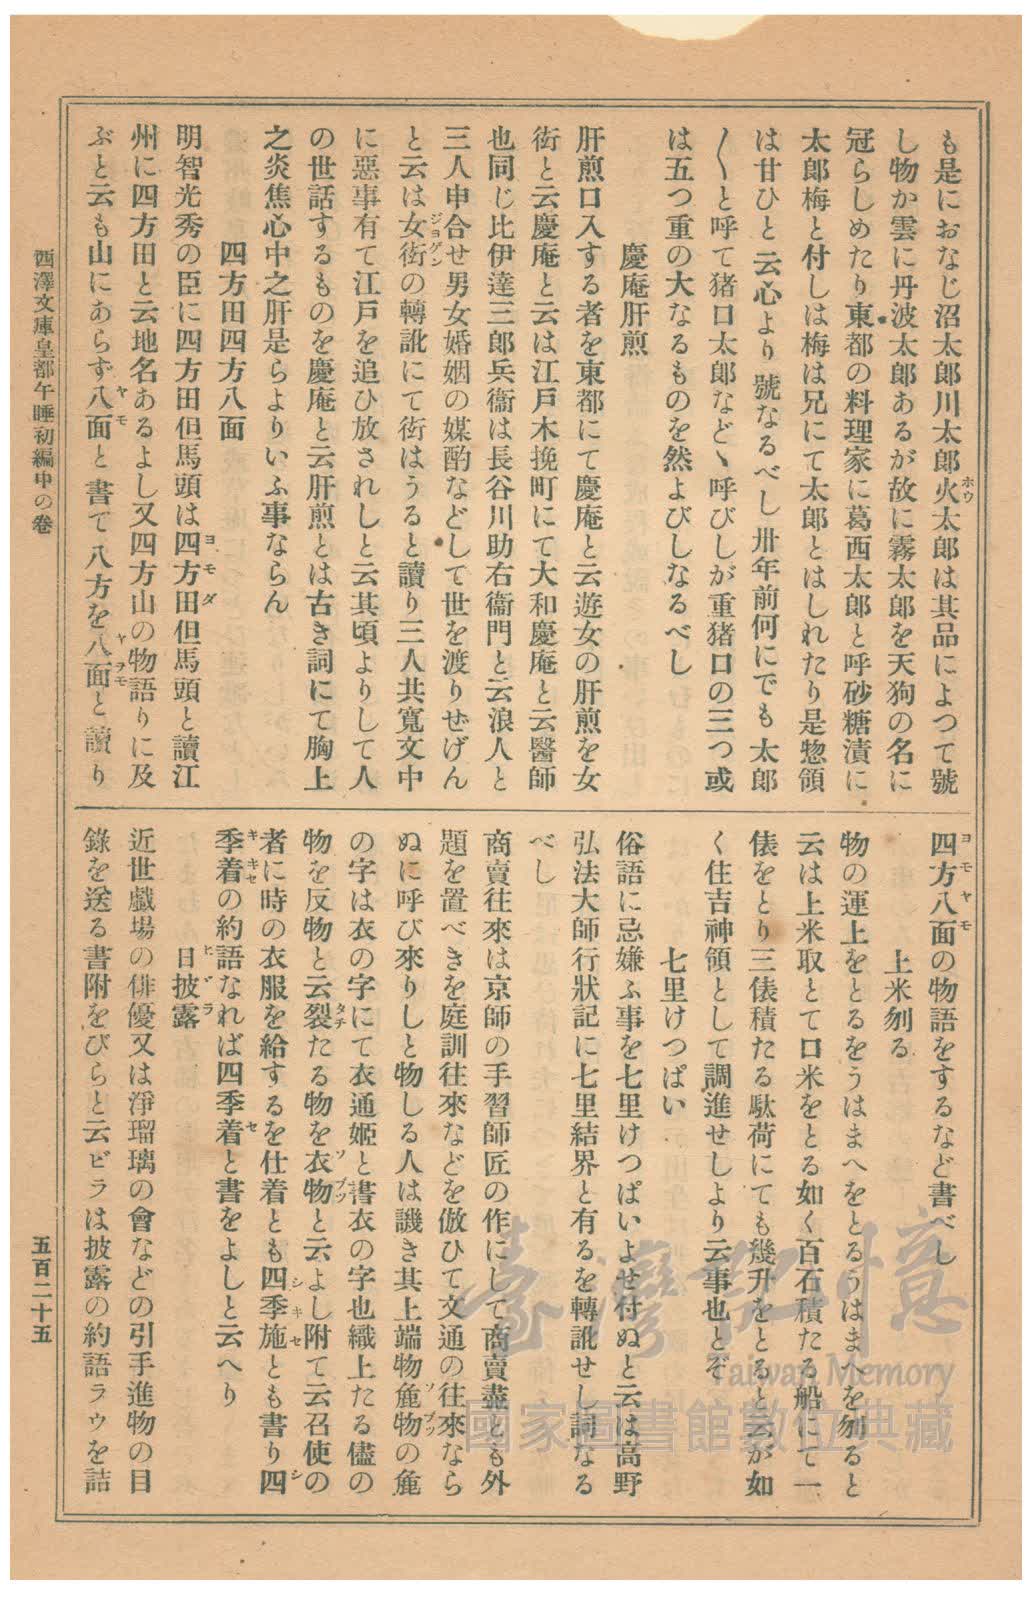 も是におなじ沼太郎川太郎火太郎は其品によつて號
し物か雲に丹波太郎あるが故に霧太郎を天狗の名に
冠らしめたり東都の料理家に葛西太郎と呼砂糖漬に
太郎梅と付しは梅は兄にて太郎とはしれたり是惣領
は甘ひと云心より號なるべし卅年前何にでも太郎
〱と呼て猪口太郎などゝ呼びしが重猪口の三つ或
は五つ重の大なるものを然よびしなるべし
慶庵肝煎
肝煎口入する者を東都にて慶庵と云遊女の肝煎を女
街と云慶庵と云は江戸木挽町にて大和慶庵と云醫師
也同じ比伊達三郎兵衞は長谷川助右衞門と云浪人と
三人申合せ男女婚姻の媒酌などして世を渡りせげん
と云は女街の轉訛にて街はうると讀り三人共寛文中
に惡事有て江戸を追ひ放されしと云其頃よりして人
の世話するものを慶庵と云肝煎とは古き詞にて胸上
之炎焦心中之肝是らよりいふ事ならん
四方田四方八面
明智光秀の臣に四方田但馬頭は四方田但馬頭と讀江
州に四方田と云地名あるよし又四方山の物語りに及
ぶと云も山にあらず八面と書て八方を八面と讀り
四方八面の物語をするなど書べし
上米刎る
物の運上をとるをうはまへをとるうはまへを刎ると
云は上米取とて口米をとる如く百石積たる船にて一
俵をとり三俵積たる駄荷にても幾升をとると云が如
く住吉神領として調進せしより云事也とぞ
七里けつぱい
俗語に忌嫌ふ事を七里けつぱいよせ付ぬと云は高野
弘法大師行狀記に七里結界と有るを轉訛せし詞なる
べし
商賣往來は京師の手習師匠の作にして商賣盡とも外
題を置べきを庭訓往來などを倣ひて文通の往來なら
ぬに呼び來りしと物しる人は譏き其上端物麁物の麁
の字は衣の字にて衣通姬と書衣の字也織上たる儘の
物を反物と云裂たる物を衣物と云よし附て云召使の
者に時の衣服を給するを仕着とも四季施とも書り四
季着の約語なれば四季着と書をよしと云へり
日披露
近世戲場の俳優又は淨瑠璃の會などの引手進物の目
錄を送る書附をびらと云ビラは披露の約語ラウを詰
西澤文庫皇都午睡初編中の卷
五百二十五
臺灣記憶
Taiwan Memory
國家圖書館數位典藏